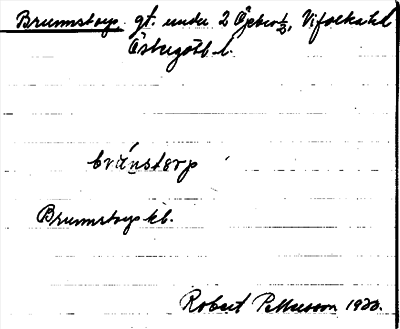 Brunnstorp gt. under 2 Öjebro 1/2, Vifolka hd
Östergötl. l.
brúnstorp
Brunnstorp kb.
Robert Pettersson 1920.